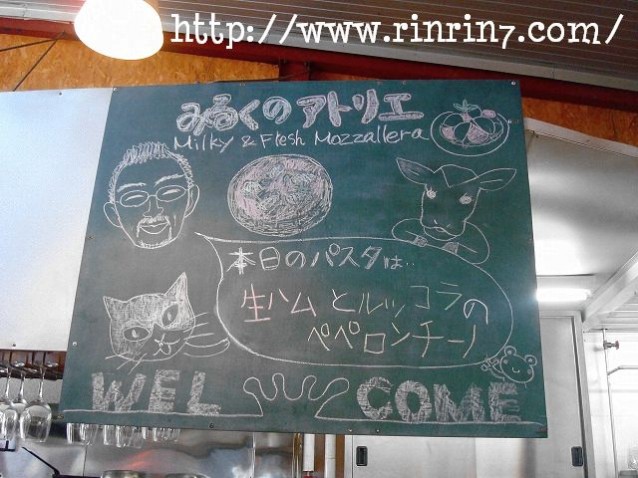 http://www.rinrin7.com/
みるくのアトリエ
Milky & Flesh Mozzallera
本日のパスタは..
生ハムとルッコラの
ペペロンチーノ
WEL COME